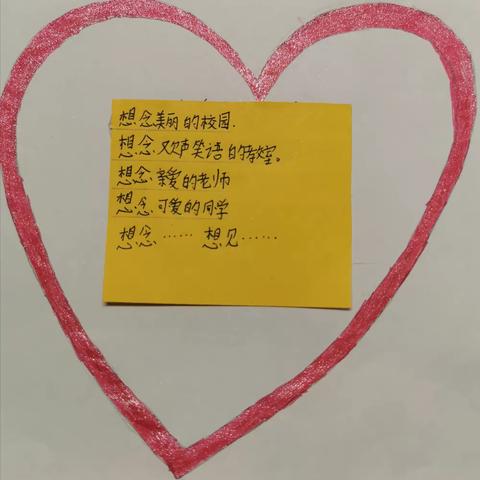 想念美丽的校园.
想念欢声笑语的教室。
想念亲爱的老师
想念可爱的同学
想念…… 想见……